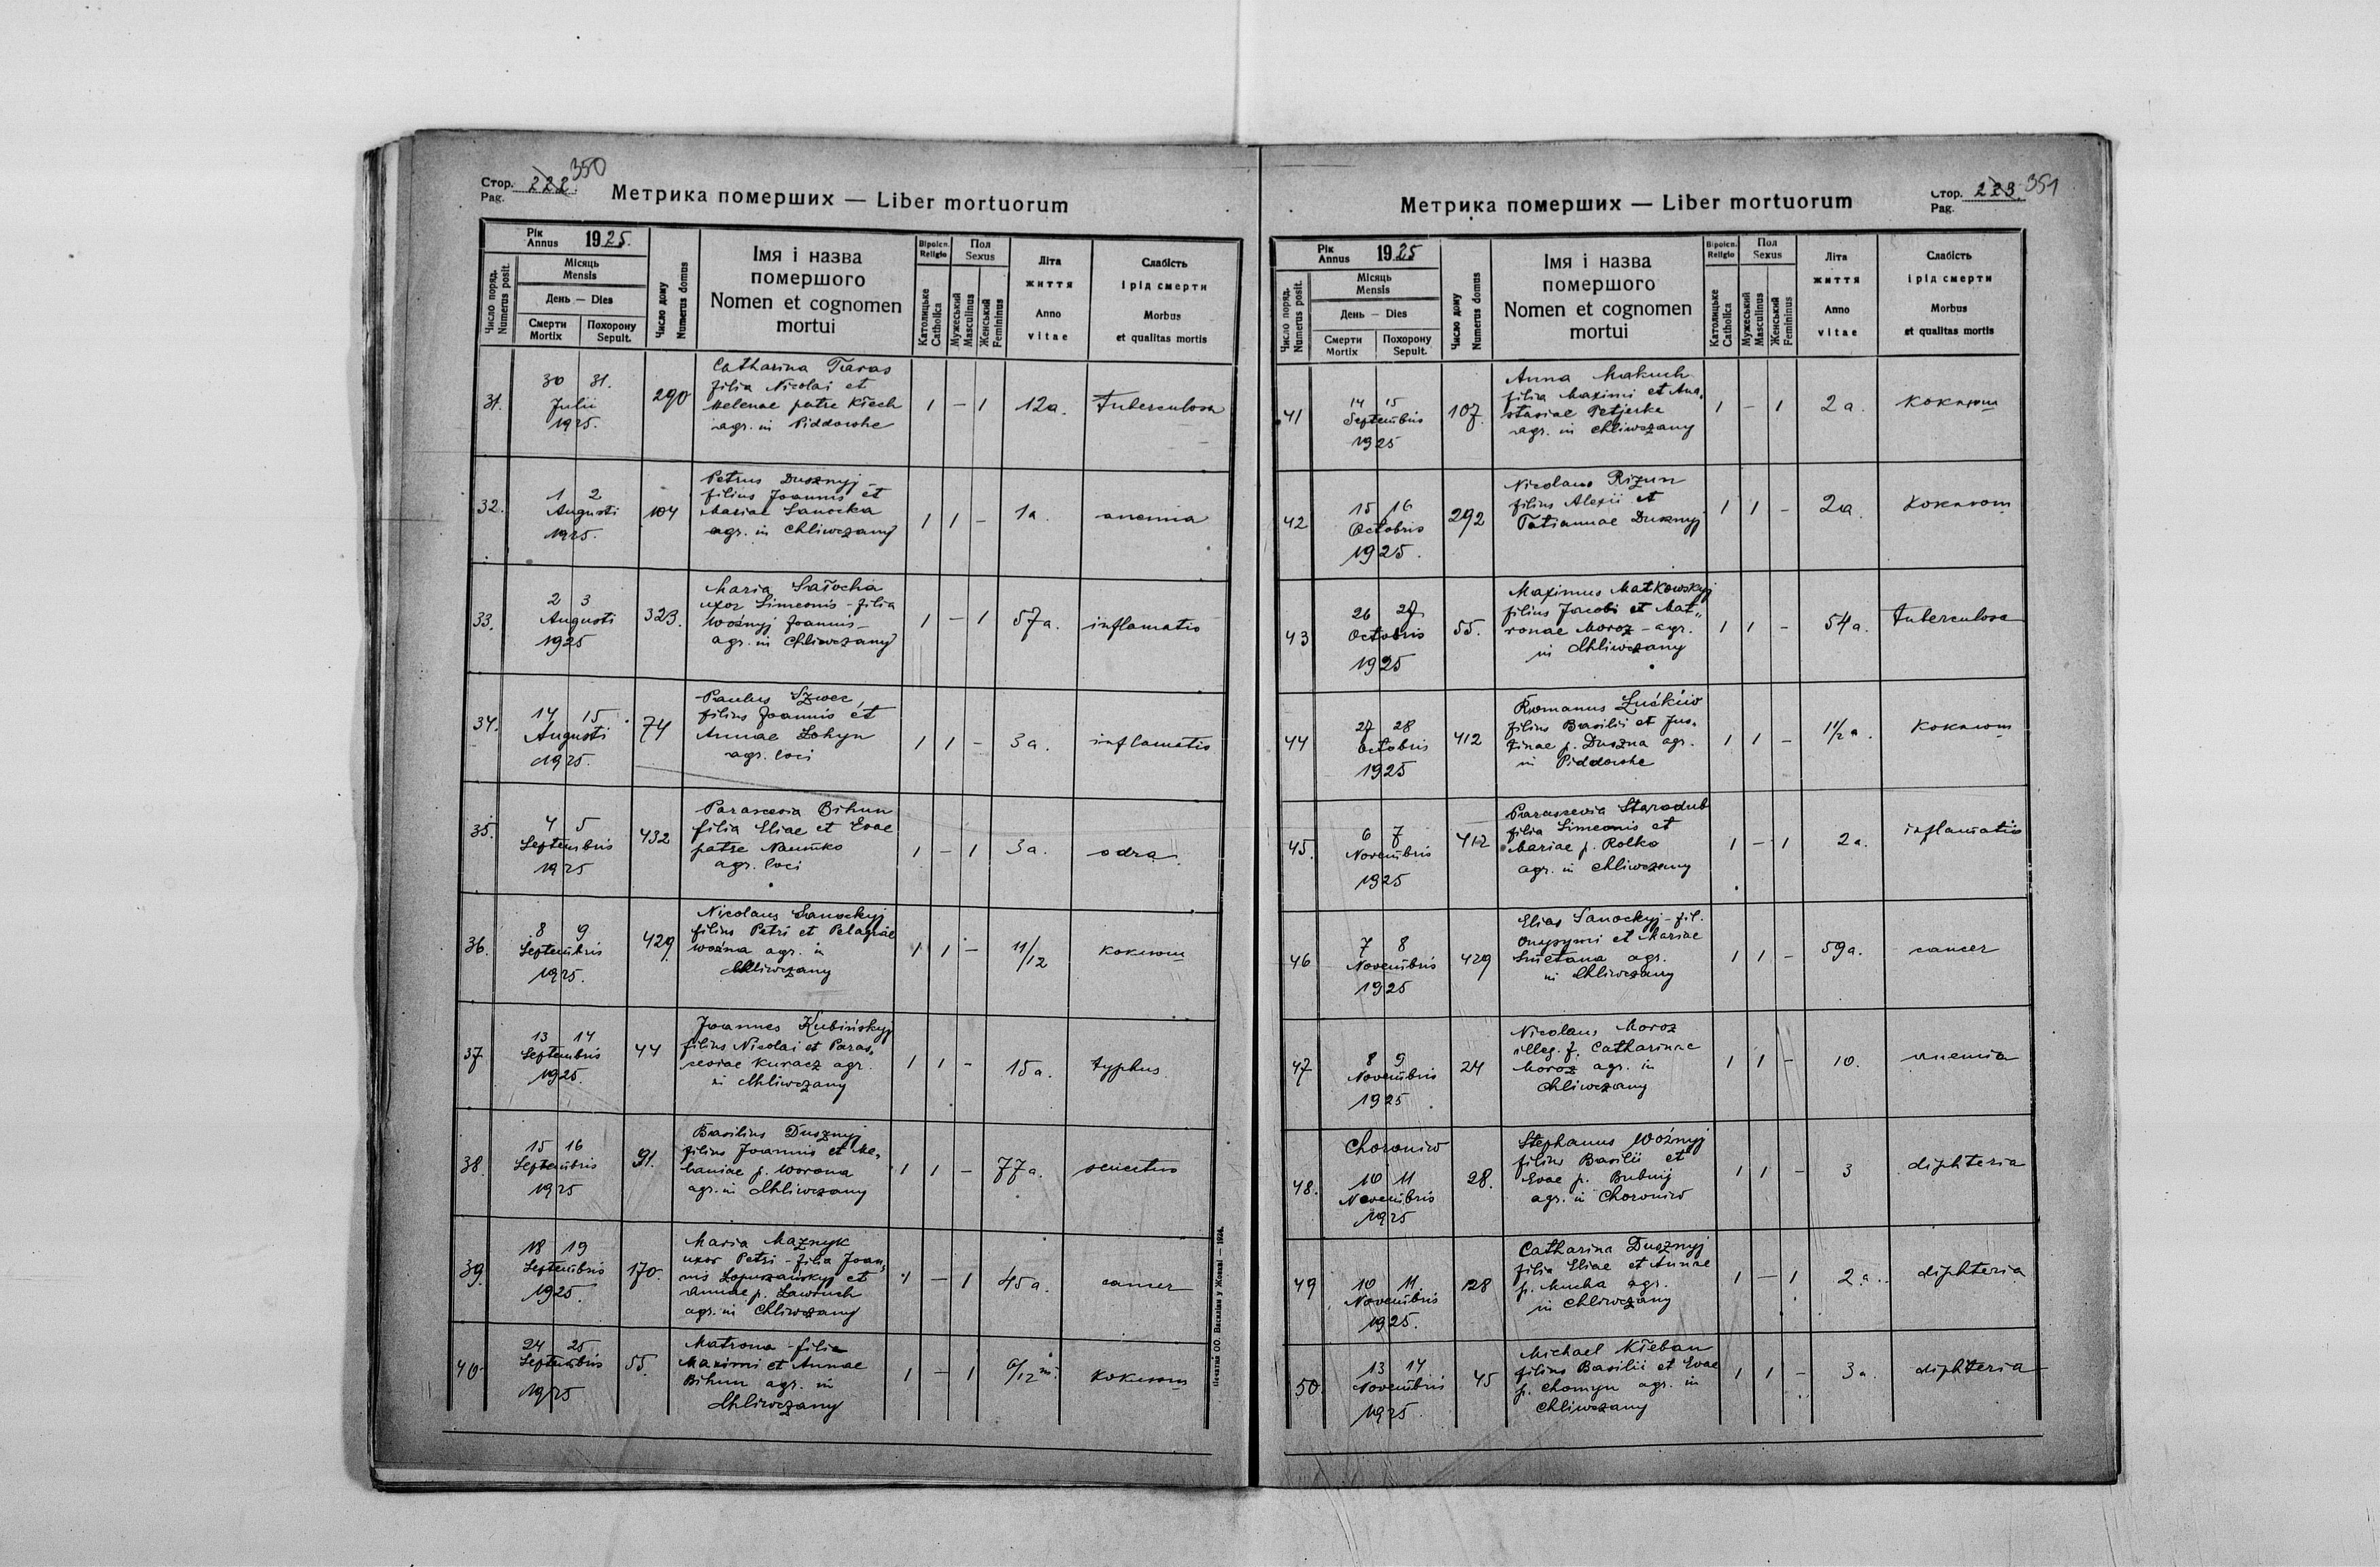 Стор. 222. 350
Pag.
Метрика померших — Liber mortuorum
Рік
Annus 1925.
Число поряд.
Numerus posit.
Місяць
Mensis
День — Dies
Смерти
Mortix
Похорону
Sepult.
Число дому
Numerus domus
Імя і назва
помершого
Nomen et cognomen
mortui
Віроісп.
Religio
Католицьке
Catholica
Пол
Sexus
Мужеський
Masculinus
Женський
Femininus
Літа
життя
Anno
vitae
Слабість
і рід смерти
Morbus
et qualitas mortis
31.
30 31.
Julii
1925.
290
Catharina Taras
filia Nicolai et
Helenae patre Kłech
agr. in Piddowhe
1 – 1
12a.
tuberculosa
32.
1 2
Augusti
1925.
104
Petrus Dusznyj
filius Joannis et
Mariae Sanocka
agr. in Chliwczany
1 1 –
1a.
anemia
33.
2 3
Augusti
1925
323.
Maria Sałocha
uxor Simeonis – filia
Woźnyj Joannis –
agr. in Chliwczany
1 – 1
57a.
inflamatio
34.
14 15
Augusti
1925.
74
Paulus Szwec,
filius Joannis et
Annae Łohyn
agr. loci
1 1 –
3a.
inflamatio
35.
4 5
Septembris
1925
432
Parascevia Bihun
filia Eliae et Evae
patre Naumko
agr. loci
1 – 1
3a.
odra
36.
8 9
Septembris
1925.
429
Nicolaus Sanockyj
filius Petri et Pelagiae
Woźna agr. in
Chliwczany
1 1 –
11/12
коклюш
37
13 14
Septembris
1925.
44
Joannes Kubińskyj
filius Nicolai et Paras„
ceviae Kuracz agr.
in Chliwczany
1 1 –
15a.
typhus
38.
15 16
Septembris
1925
91.
Basilius Dusznyj
filius Joannis et Me„
laniae p. Worona
agr. in Chliwczany
1 1 –
77a.
senectus
39.
18 19
Septembris
1925.
170.
Maria Maznyk
uxor Petri – filia Joan„
nis Łopuszańskyj et
Annae p. Ławruch
agr. in Chliwczany
1 – 1
45a.
cancer
40.
24 25
Septembris
1925
55.
Matrona – filia
Maximi et Annae
Bihun agr. in
Chliwczany
1 – 1
6/12 m.
коклюш
Печатня ОО. Василіян у Жовкві — 1924.
Стор. 223. 351
Pag.
Метрика померших — Liber mortuorum
Рік
Annus 1925
Число поряд.
Numerus posit.
Місяць
Mensis
День — Dies
Смерти
Mortix
Похорону
Sepult.
Число дому
Numerus domus
Імя і назва
помершого
Nomen et cognomen
mortui
Віроісп.
Religio
Католицьке
Catholica
Пол
Sexus
Мужеський
Masculinus
Женський
Femininus
Літа
життя
Anno
vitae
Слабість
і рід смерти
Morbus
et qualitas mortis
41
14 15
Septembris
1925
107.
Anna Makuch
filia Maximi et Ana„
stasiae Petjerka
agr. in Chliwczany
1 – 1
2a.
коклюш
42
15 16
Octobris
1925.
292
Nicolaus Rizun
filius Alexii et
Tatiannae Dusznyj
1 1 –
2a.
коклюш
43
26 27
Octobris
1925
55.
Maximus Matkowskyj
filius Jacobi et Mat„
ronae Moroz – agr.
in Chliwczany
1 1 –
54a.
tuberculosa
44
27 28
Octobris
1925
412
Romanus Łućkiw
filius Basilii et Jus„
tinae p. Duszna agr.
in Piddowhe
1 1 –
1 1/2 a.
коклюш
45.
6 7
Novembris
1925
412
Parascevia Starodub
filia Simeonis et
Mariae p. Rolko
agr. in Chliwczany
1 – 1
2a.
inflamatio
46
7 8
Novembris
1925
429
Elias Sanockyj – fil.
Onyzymi et Mariae
Smetana agr.
in Chliwczany
1 1 –
59a.
cancer
47
8 9
Novembris
1925.
24
Nicolaus Moroz
illeg. f. Catharinae
Moroz agr. in
Chliwczany
1 1 –
10.
anemia
48.
Choroniw
10 11
Novembris
1925
28.
Stephanus Woźnyj
filius Basilii et
Evae p. Bubnij
agr. in Choroniw
1 1 –
3
diphteria
49
10 11
Novembris
1925.
128
Catharina Dusznyj
filia Eliae et Annae
p. Mucha agr.
in Chliwczany
1 – 1
2a.
diphteria
50.
13 14
Novembris
1925.
45
Michael Kłeban
filius Basilii et Evae
p. Chomyn agr. in
Chliwczany
1 1 –
3a.
diphteria